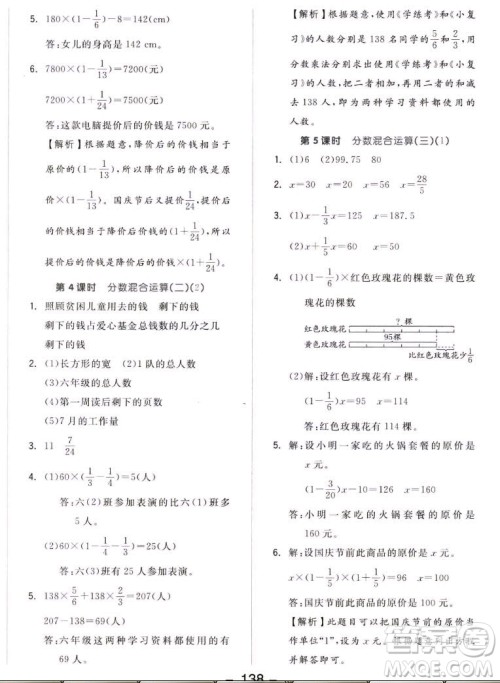 180×(1-1/6)-8=142(cm)
答:女儿的身高是 142 cm。
6. 7800×(1-1/13)=7200(元)
7200×(1+1/24)=7500(元)
答:这款电脑提价后的价钱是 7500 元。
【解析】根据题意,降价后的价钱相当于
原价的(1-1/13),所以降价后的价钱=原
价×(1-1/13)。国庆节后又提价1/24,提价
后的价钱相当于降价后价钱的(1+1/24),
所以提价后的价钱=降价后的价钱×(1+
1/24)。
第 4 课时 分数混合运算(二)(2)
1. 照顾贫困儿童用去的钱 剩下的钱
剩下的钱占爱心基金总钱数的几分之几
剩下的钱
2. (1)长方形的宽 (2)1 队的总人数
(3)六年级的总人数
(4)第一周读后剩下的页数
(5)7 月的工作量
3. 11 7/24
4. (1)60×(1/3-1/4)=5(人)
答:六(2)班参加表演的比六(1)班多
5 人。
(2)60×(1-1/3-1/4)=25(人)
答:六(3)班参加表演的有 25 人。
5. 138×5/6+138×2/3=207(人)
207-138=69(人)
答:六年级这两种学习资料都使用的有
69 人。
【解析】根据题意,使用《学练考》和《小复
习》的人数分别是 138 名学生的5/6和2/3,用
分数乘法求出使用《学练考》和《小复习》
的人数,把二者相加,再减去总人数 138
人,即为这两种学习资料都使用的
人数。
第 5 课时 分数混合运算(三)(1)
1. (1)6 (2)99.75 80
2. x=30 x=20 x=56 x=28/5
3. (1)x-1/3x=125 x=187.5
(2)x+1/5x=60 x=50
4. (1)(1-1/6)×红色玫瑰花的棵数=黄色玫
瑰花的棵数
?棵
红色玫瑰花
95棵
黄色玫瑰花
比红色玫瑰花少1/6
(2)解:设红色玫瑰花有 x 棵。
(1-1/6)x=95 x=114
答:红色玫瑰花有 114 棵。
5. 解:设小明一家吃的火锅套餐的原价是
x 元。
(1-3/10)x=126 x=180
答:小明一家吃的火锅套餐的原价是
180 元。
6. 解:设国庆节前此商品的原价是 x 元。
答:国庆节前此商品的原价是
1000 元。
- 138 -